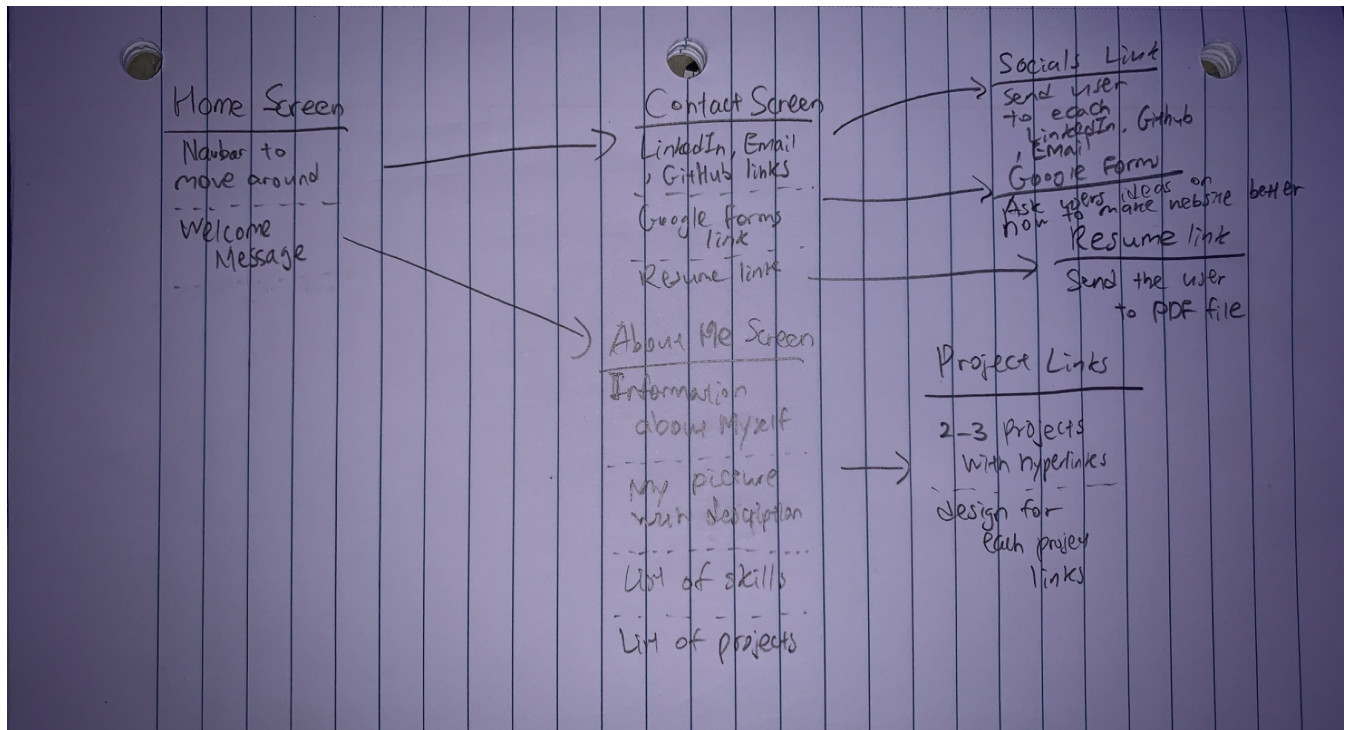 Home Screen
Navbar to
move around
Welcome
Message
Contact Screen
LinkedIn, Email
, GitHub links
Google forms
link
Resume link
About Me Screen
Information
about Myself
My picture
with description
List of skills
List of projects
Socials Link
Send user
to each
LinkedIn, Github
, Email
Google Form
Ask users ideas on
how to make website better
Resume link
Send the user
to PDF file
Project Links
2-3 projects
with hyperlinks
design for
each project
links